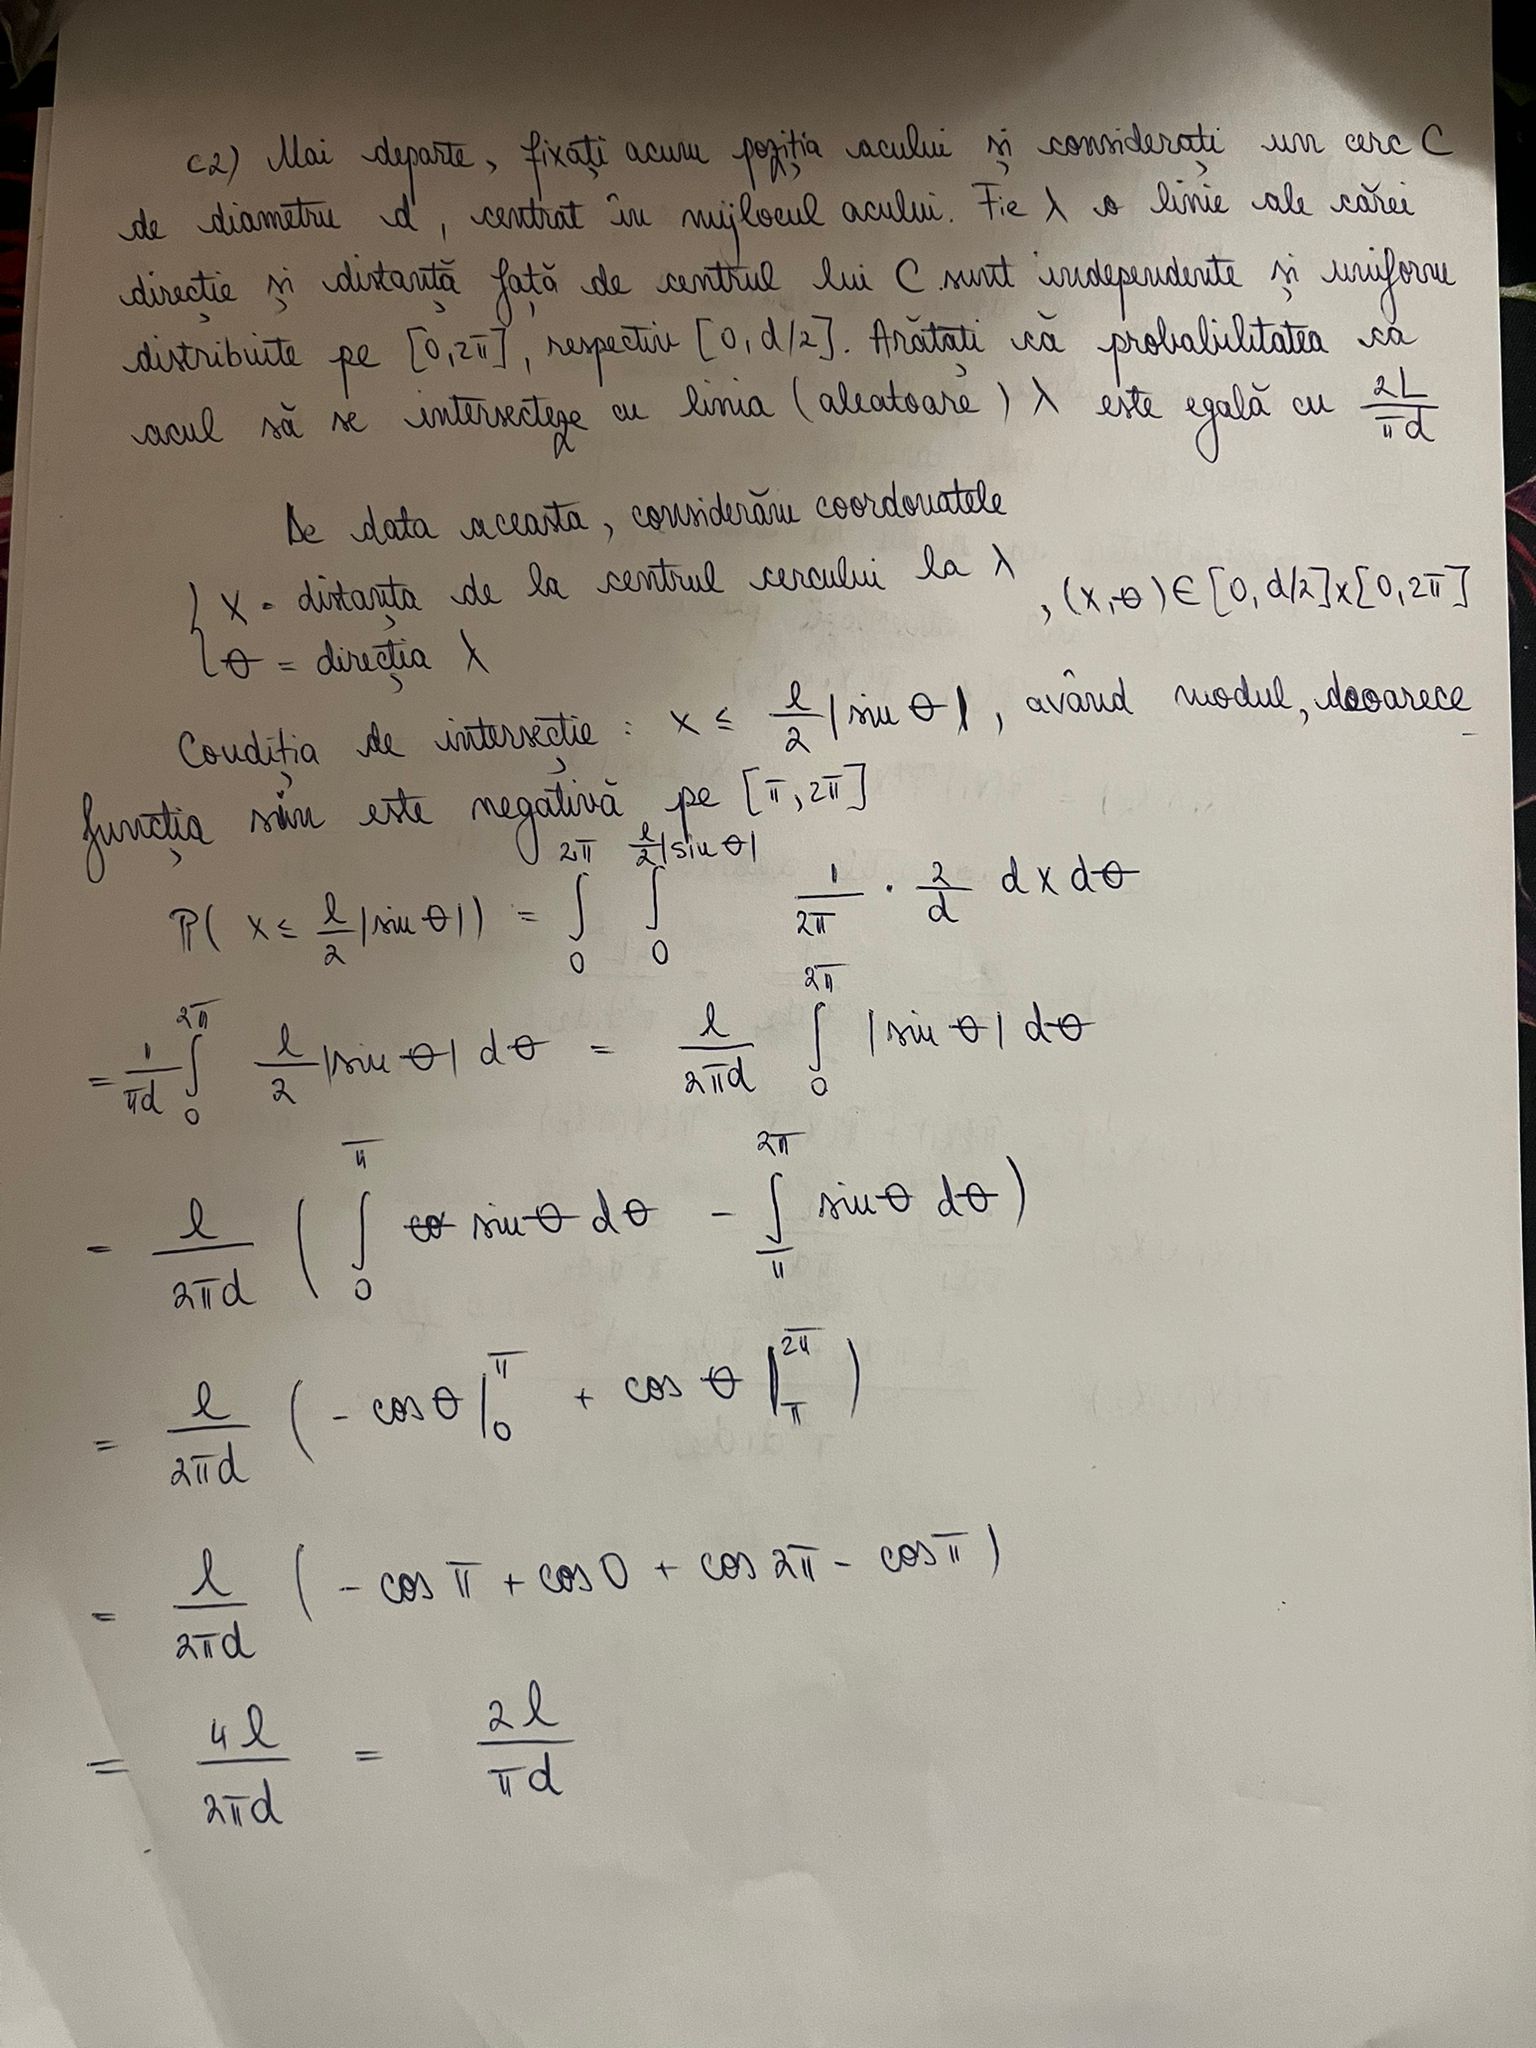 c2) Mai departe, fixați acum poziția acului și considerați un cerc C
de diametru d, centrat în mijlocul acului. Fie λ o linie ale cărei
direcție și distanță față de centrul lui C sunt independente și uniform
distribuite pe [0,2π], respectiv [0,d/2]. Arătați că probabilitatea ca
acul să se intersecteze cu linia (aleatoare) λ este egală cu 2L/πd
De data aceasta, considerăm coordonatele
{ X = distanța de la centrul cercului la λ , (X,θ) ∈ [0,d/2]x[0,2π]
θ = direcția λ
Condiția de intersecție : X ≤ l/2 |sin θ|, având modul, deoarece
funcția sin este negativă pe [π,2π]
P( X ≤ l/2 |sin θ|) = ∫_0^{2π} ∫_0^{l/2|sin θ|} 1/2π · 2/d dX dθ
= 1/πd ∫_0^{2π} l/2 |sin θ| dθ = l/2πd ∫_0^{2π} |sin θ| dθ
= l/2πd ( ∫_0^π sin θ dθ - ∫_π^{2π} sin θ dθ )
= l/2πd ( - cos θ |_0^π + cos θ |_π^{2π} )
= l/2πd ( - cos π + cos 0 + cos 2π - cos π )
= 4l/2πd = 2l/πd